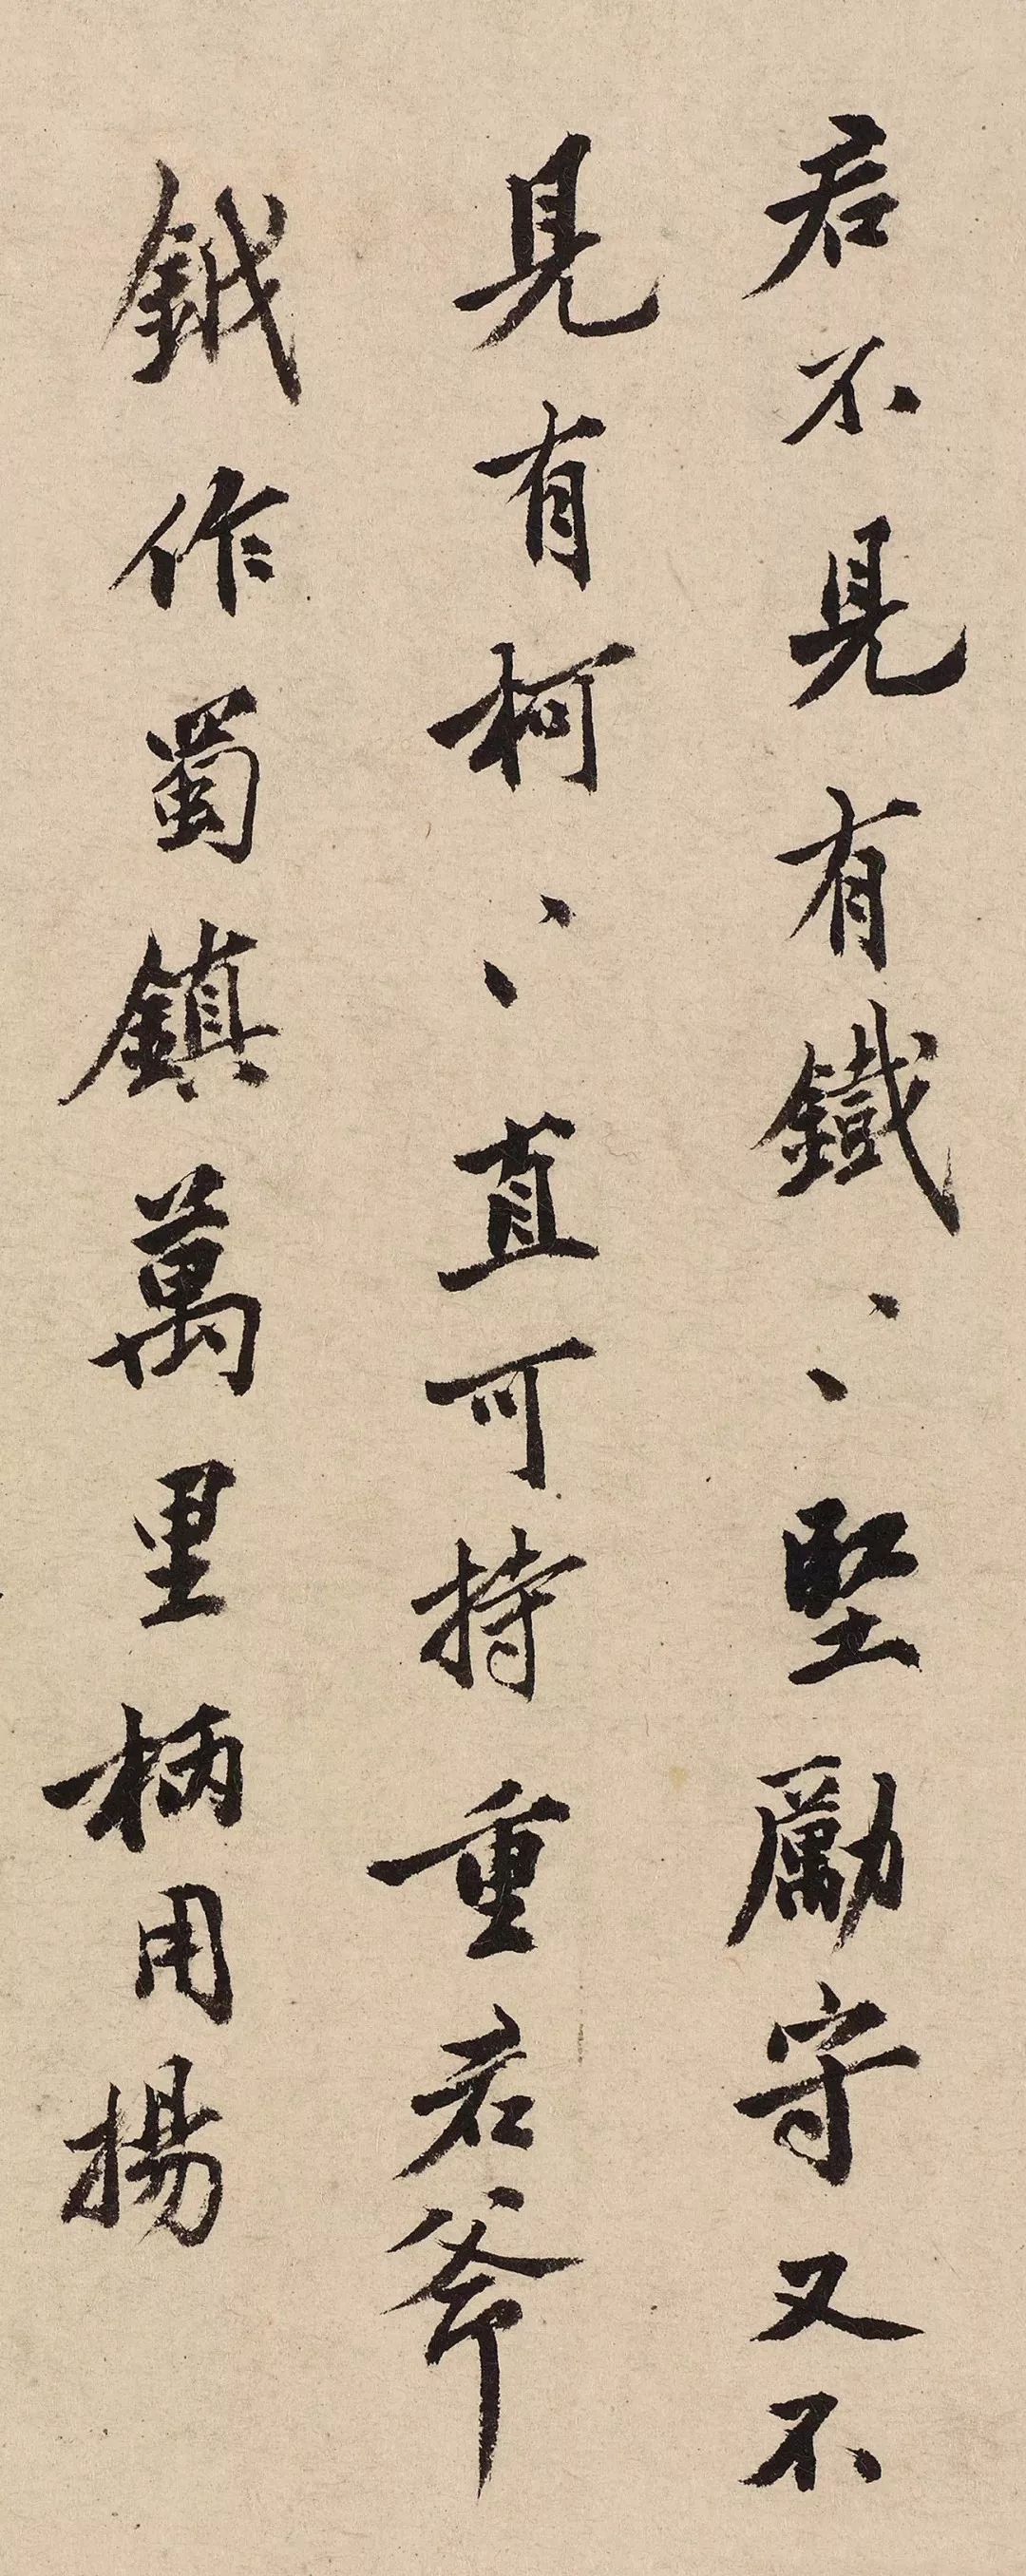 君不見有鐵〻堅勵守又不
見有柯〻直可持重君斧
鉞作蜀鎮萬里柄用揚